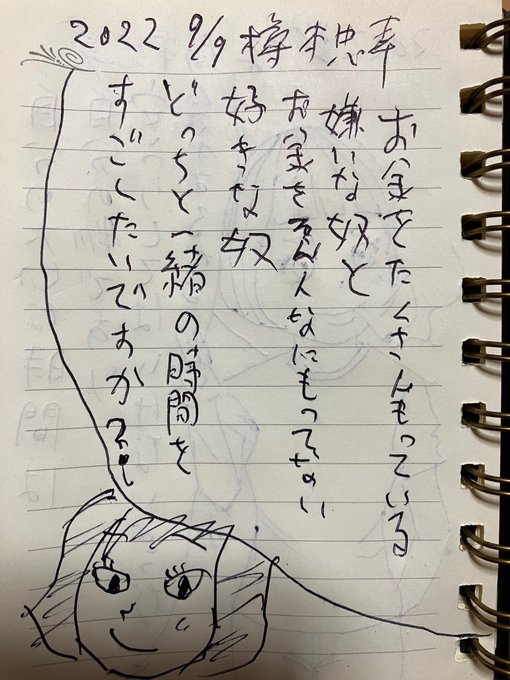 2022 9/9
お金をたくさんもっている
嫌いな奴と
お金をそんなにもってない
好きな奴
どっちと一緒の時間を
すごしたいですか?